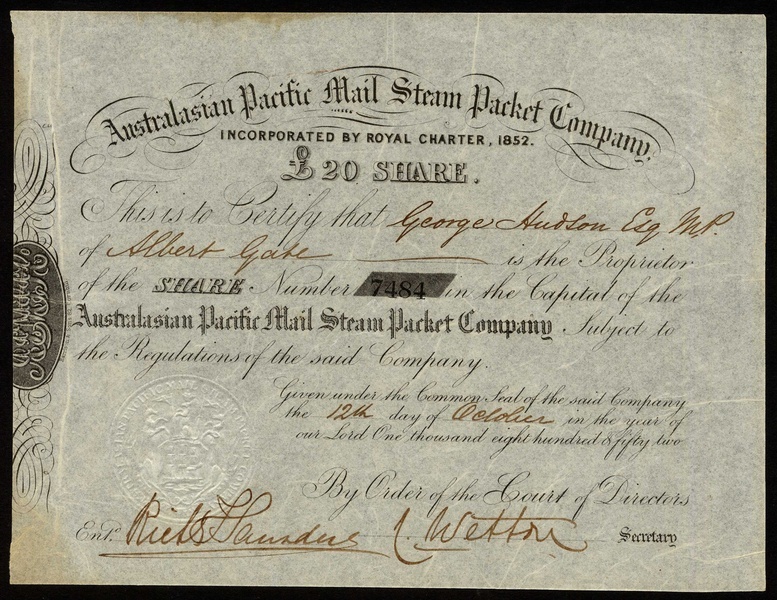 Australasian Pacific Mail Steam Packet Company.
INCORPORATED BY ROYAL CHARTER, 1852.
£20 SHARE.
This is to Certify that George Hudson Esq M.P.
of Albert Gate is the Proprietor
of the SHARE Number 7484 in the Capital of the
Australasian Pacific Mail Steam Packet Company Subject to
the Regulations of the said Company.
Given under the Common Seal of the said Company
the 12th day of October in the year of
our Lord One thousand eight hundred & fifty two
By Order of the Court of Directors
Entd. Secretary